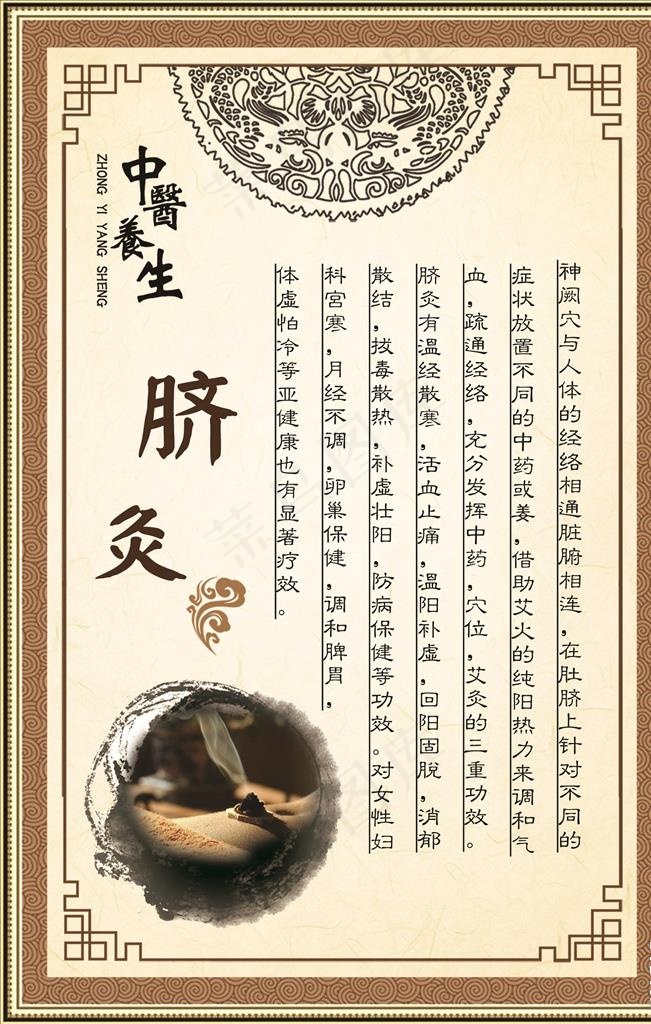 中醫養生
ZHONG YI YANG SHENG
脐灸
神阙穴与人体的经络相通脏腑相连，在肚脐上针对不同的
症状放置不同的中药或姜，借助艾火的纯阳热力来调和气
血，疏通经络，充分发挥中药，穴位，艾灸的三重功效。
脐灸有温经散寒，活血止痛，温阳补虚，回阳固脱，消郁
散结，拔毒散热，补虚壮阳，防病保健等功效。对女性妇
科宫寒，月经不调，卵巢保健，调和脾胃，
体虚怕冷等亚健康也有显著疗效。